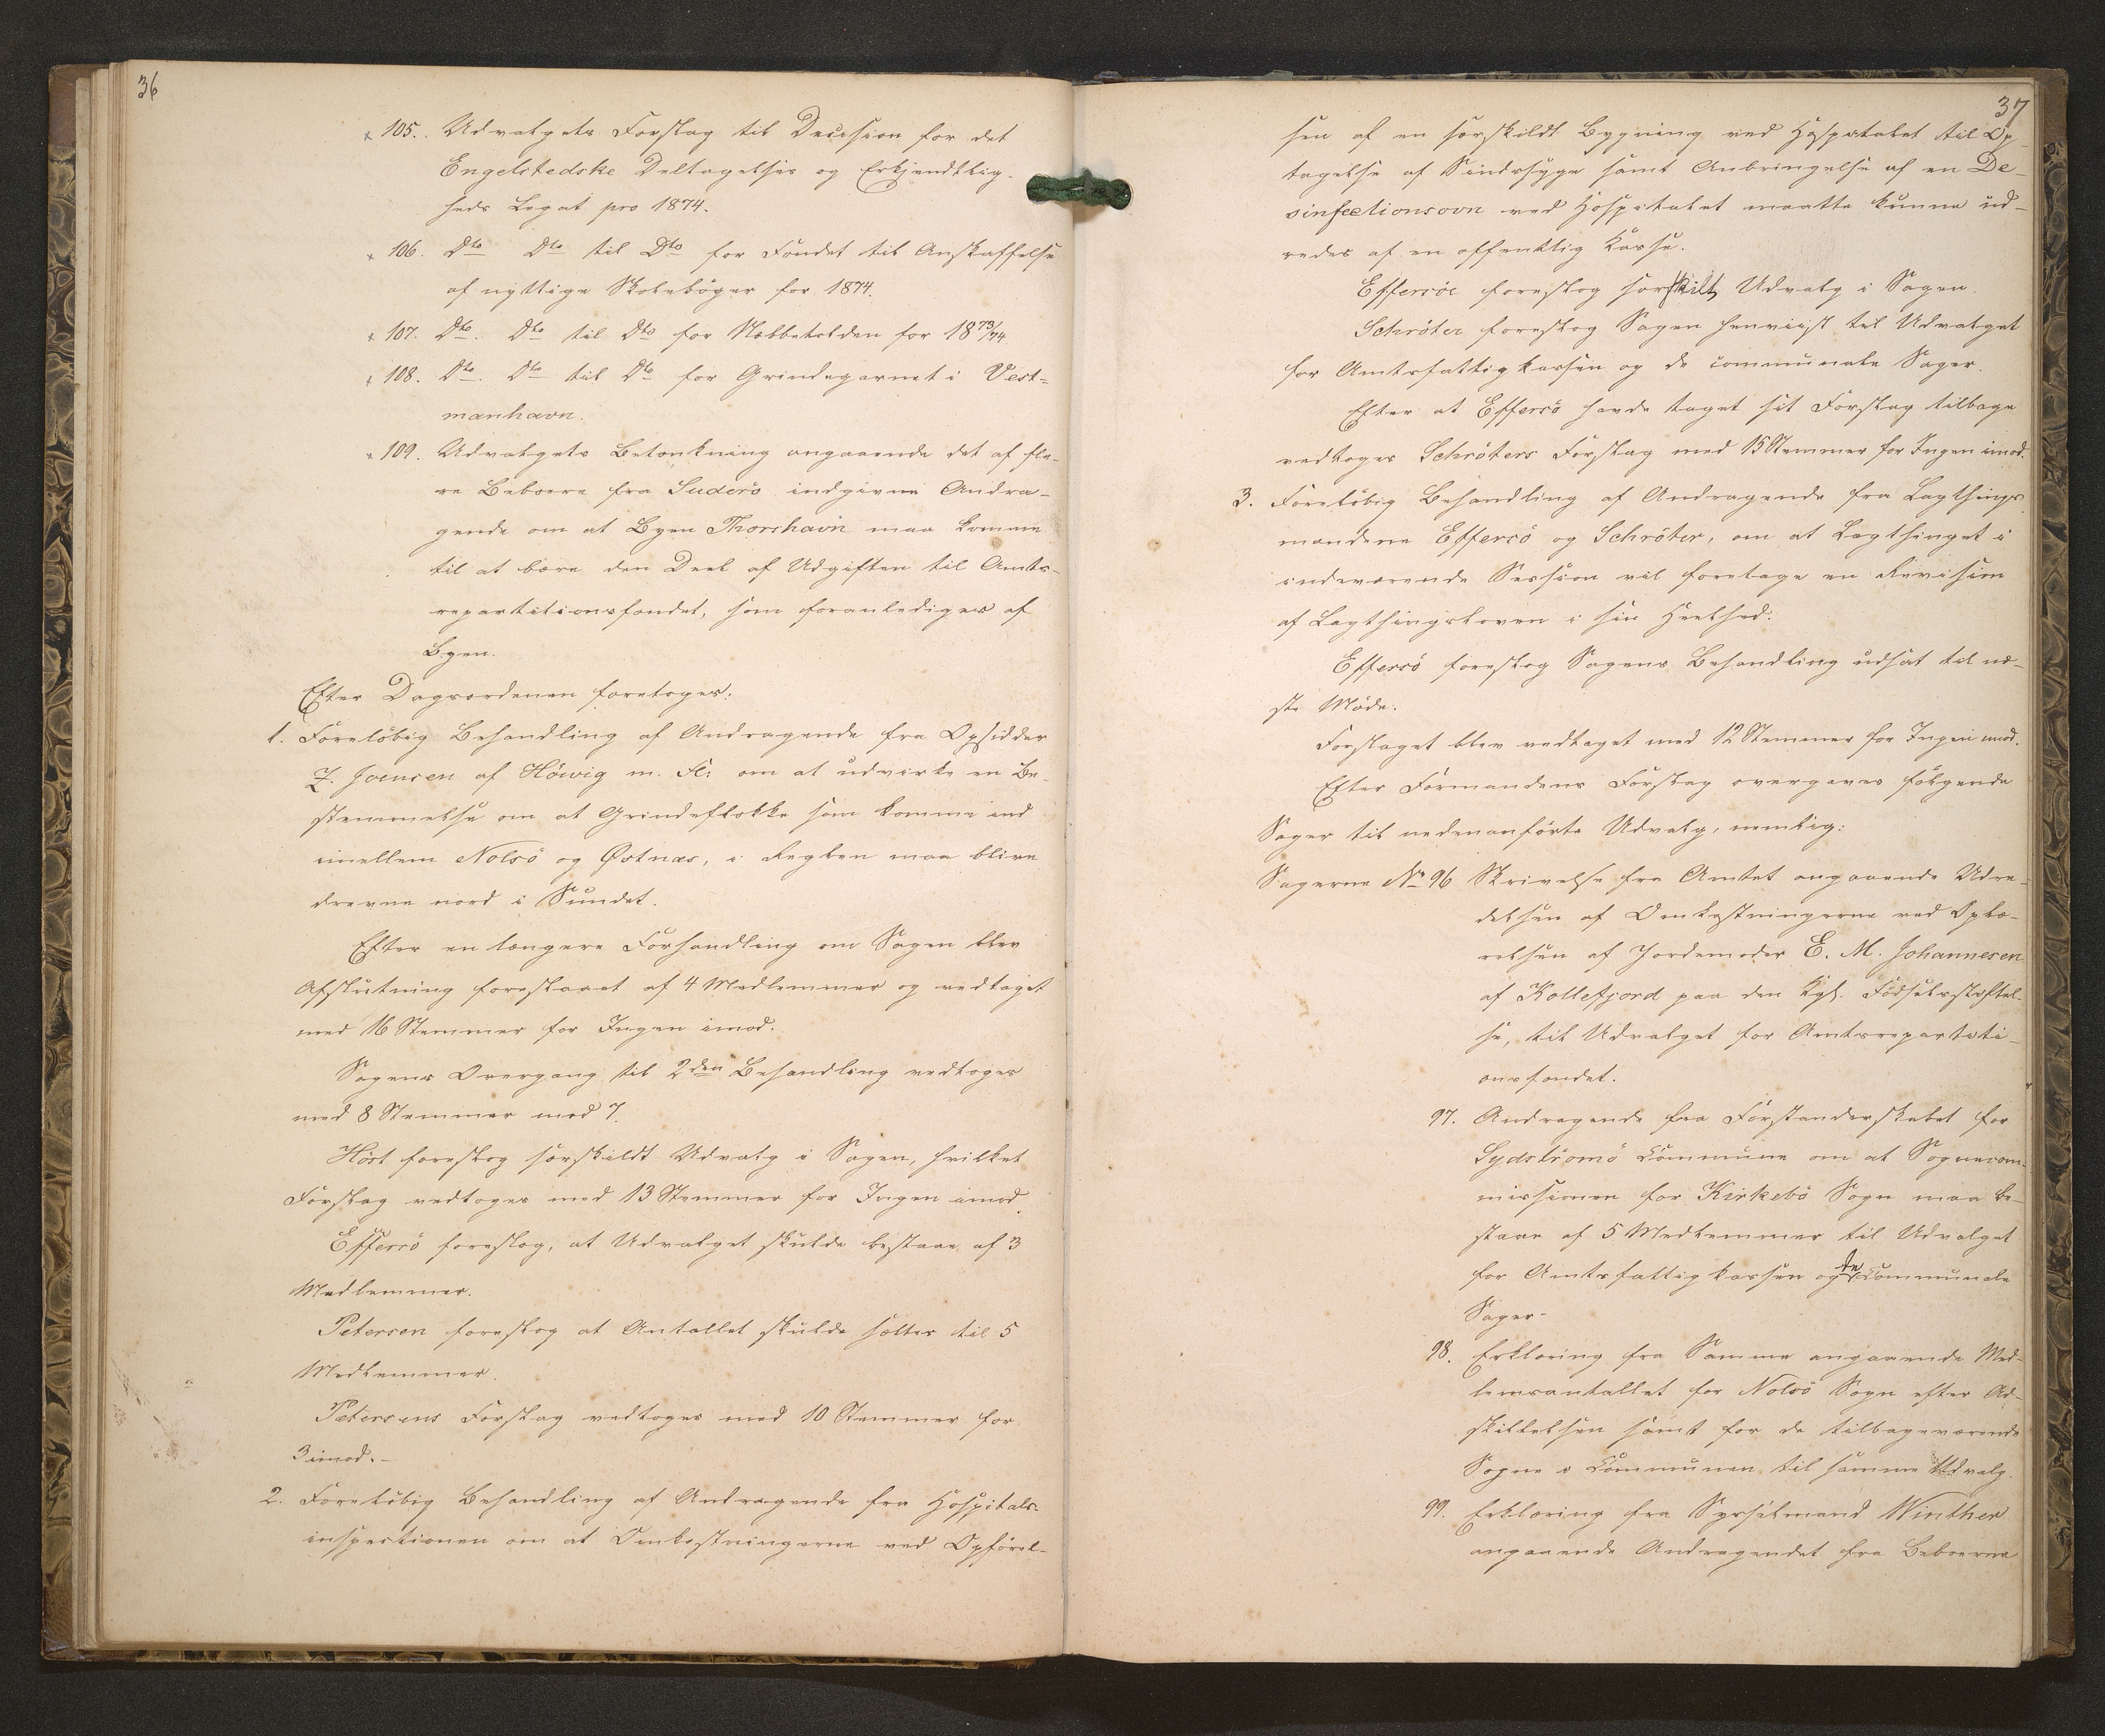 36
105. Udvalgets Forslag til Decision for det
Engelstedske Deltagelses og Erkjendtlig-
heds Legat pro 1874.
106. Dto Dto til Dto for Fondet til Anskaffelse
af nyttige Skolebøger for 1874.
107. Dto. Dto til Dto for Næbbetolden for 1873/74
108. Dto. Dto til Dto for Grindegarnet i Vest-
manhavn.
109. Udvalgets Betænkning angaaende det af fle-
re Beboere fra Suderö indgivne Andra-
gende om at Byen Thorshavn maa komme
til at bære den Deel af Udgiften til Amts-
repartitionsfondet, som foranlediges af
Byen.
Efter Dagsordenen foretoges:
1. Foreløbig Behandling af Andragende fra Opsidder
Z. Joensen af Höivig m. Fl: om at udvirke en Be-
stemmelse om at Grindeflokke som komme ind
imellem Nolsö og Østnæs, i Reglen maa blive
drevne nord i Sundet.
Efter en længere Forhandling om Sagen blev
Afslutning foreslaaet af 4 Medlemmer og vedtaget
med 16 Stemmer for Ingen imod.
Sagens Overgang til 2den Behandling vedtoges
med 8 Stemmer mod 7.
Höst foreslog særskildt Udvalg i Sagen, hvilket
Forslag vedtoges med 13 Stemmer for Ingen imod.
Effersö foreslog, at Udvalget skulde bestaae af 3
Medlemmer.
Petersen foreslog at Antallet skulde sættes til 5
Medlemmer.
Petersens Forslag vedtoges med 10 Stemmer for
3 imod.-
2. Foreløbig Behandling af Andragende fra Hospitals-
inspectionen om at Omkostningerne ved Opförel-
37
sen af en særskildt Bygning ved Hospitalet til Op-
tagelse af Sindssyge samt Anbringelse af en De-
sinfectionsovn ved Hospitalet maatte kunne ud-
redes af en offentlig Kasse.
Effersöe foreslog særskilt Udvalg i Sagen.
Schröter foreslog Sagen henviist til Udvalget
for Amtsfattigkassen og de communale Sager.
Efter at Effersö havde taget sit Forslag tilbage
vedtoges Schröters Forslag med 15 Stemmer for Ingen imod.
3. Foreløbig Behandling af Andragende fra Lagthings-
mændene Effersö og Schröter, om at Lagthinget i
indeværende Session vil foretage en Revision
af Lagthingsloven i sin Heelhed.
Effersö foreslog Sagens Behandling udsat til næ-
ste Møde.
Forslaget blev vedtaget med 12 Stemmer for Ingen imod.
Efter Formandens Forslag overgaves følgende
Sager til nedenanførte Udvalg, nemlig:
Sagerne No 96 Skrivelse fra Amtet angaaende Udre-
delsen af Omkostningerne ved Oplæ-
relsen af Jordemoder E. M. Johannesen
af Kollefjord paa den Kgl. Fødselsstiftel-
se, til Udvalget for Amtsrepartiti-
onsfondet.
97. Andragende fra Forstanderskabet for
Sydströmö Commune om at Sognecom-
missionen for Kirkebö Sogn maa be-
staae af 5 Medlemmer til Udvalget
for Amtsfattigkassen og de Communale
Sager-
98. Erklæring fra Samme angaaende Med-
lemsantallet for Nolsö Sogn efter Ad-
skillelsen samt for de tilbageværende
Sogne i Communen til samme Udvalg.
99. Erklæring fra Sysselmand Winther
angaaende Andragendet fra Beboerne